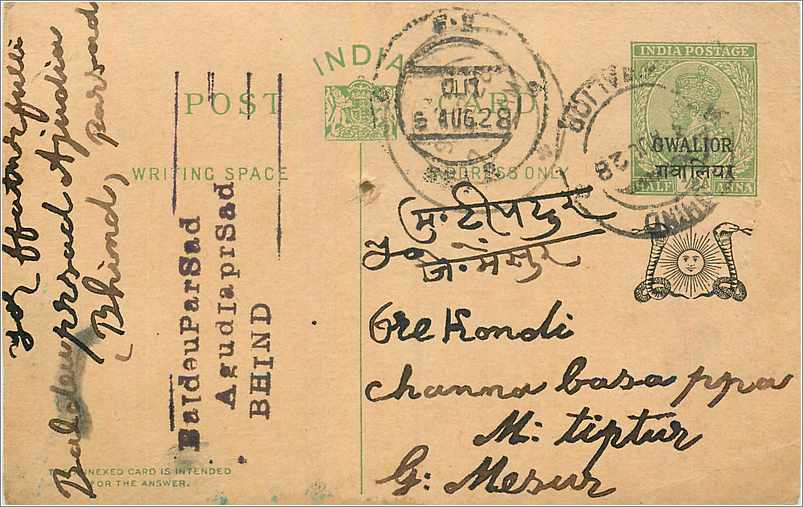 INDIA
POST CARD
WRITING SPACE
ADDRESS ONLY
INDIA POSTAGE
GWALIOR
गवालियर
HALF ANNA
OUT
6 AUG 28
BHIND
मु. टीपटुर
जि. मैसुर
Ore Kondi
channa basa ppa
M: tiptur
G: Mesur
BaldeuParSad
AgudIaprSad
BHIND
Baldeuprsad Ajudia parsad
Bhind,
THE ANNEXED CARD IS INTENDED
FOR THE ANSWER.